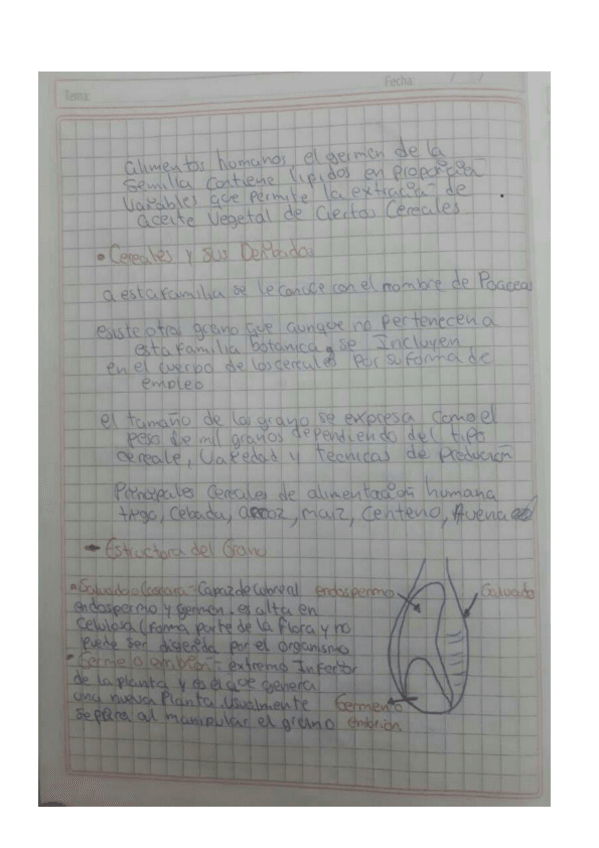 Fecha:
Tema:
alimentos humanos, el germen de la
semilla contiene lipidos en proporción
variables que permite la extracción de
aceite vegetal de ciertos cereales.
• Cereales y sus Derivados
a esta familia se le conoce con el nombre de Poaceas
existe otros grano que aunque no pertenecen a
esta familia botanica, se Incluyen
en el cuerpo de los cereales por su forma de
empleo
el tamaño de los grano se expresa como el
peso de mil granos dependiendo del tipo
cereale, Variedad y tecnicas de Producción
Principales Cereales de alimentación humana
trigo, Cebada, arroz, maiz, Centeno, Avena
Estructora del Grano
Salvado o Cascara = Capaz de cubre al
endospermo y germen. es alta en
celulosa (forma parte de la flora y no
puede ser digerida por el organismo
Germe o embrion = extremo Inferior
de la planta y es el que genera
una nueva Planta. usualmente
se al manipular el grano
endospermo
Salvado
Germen o
embrion